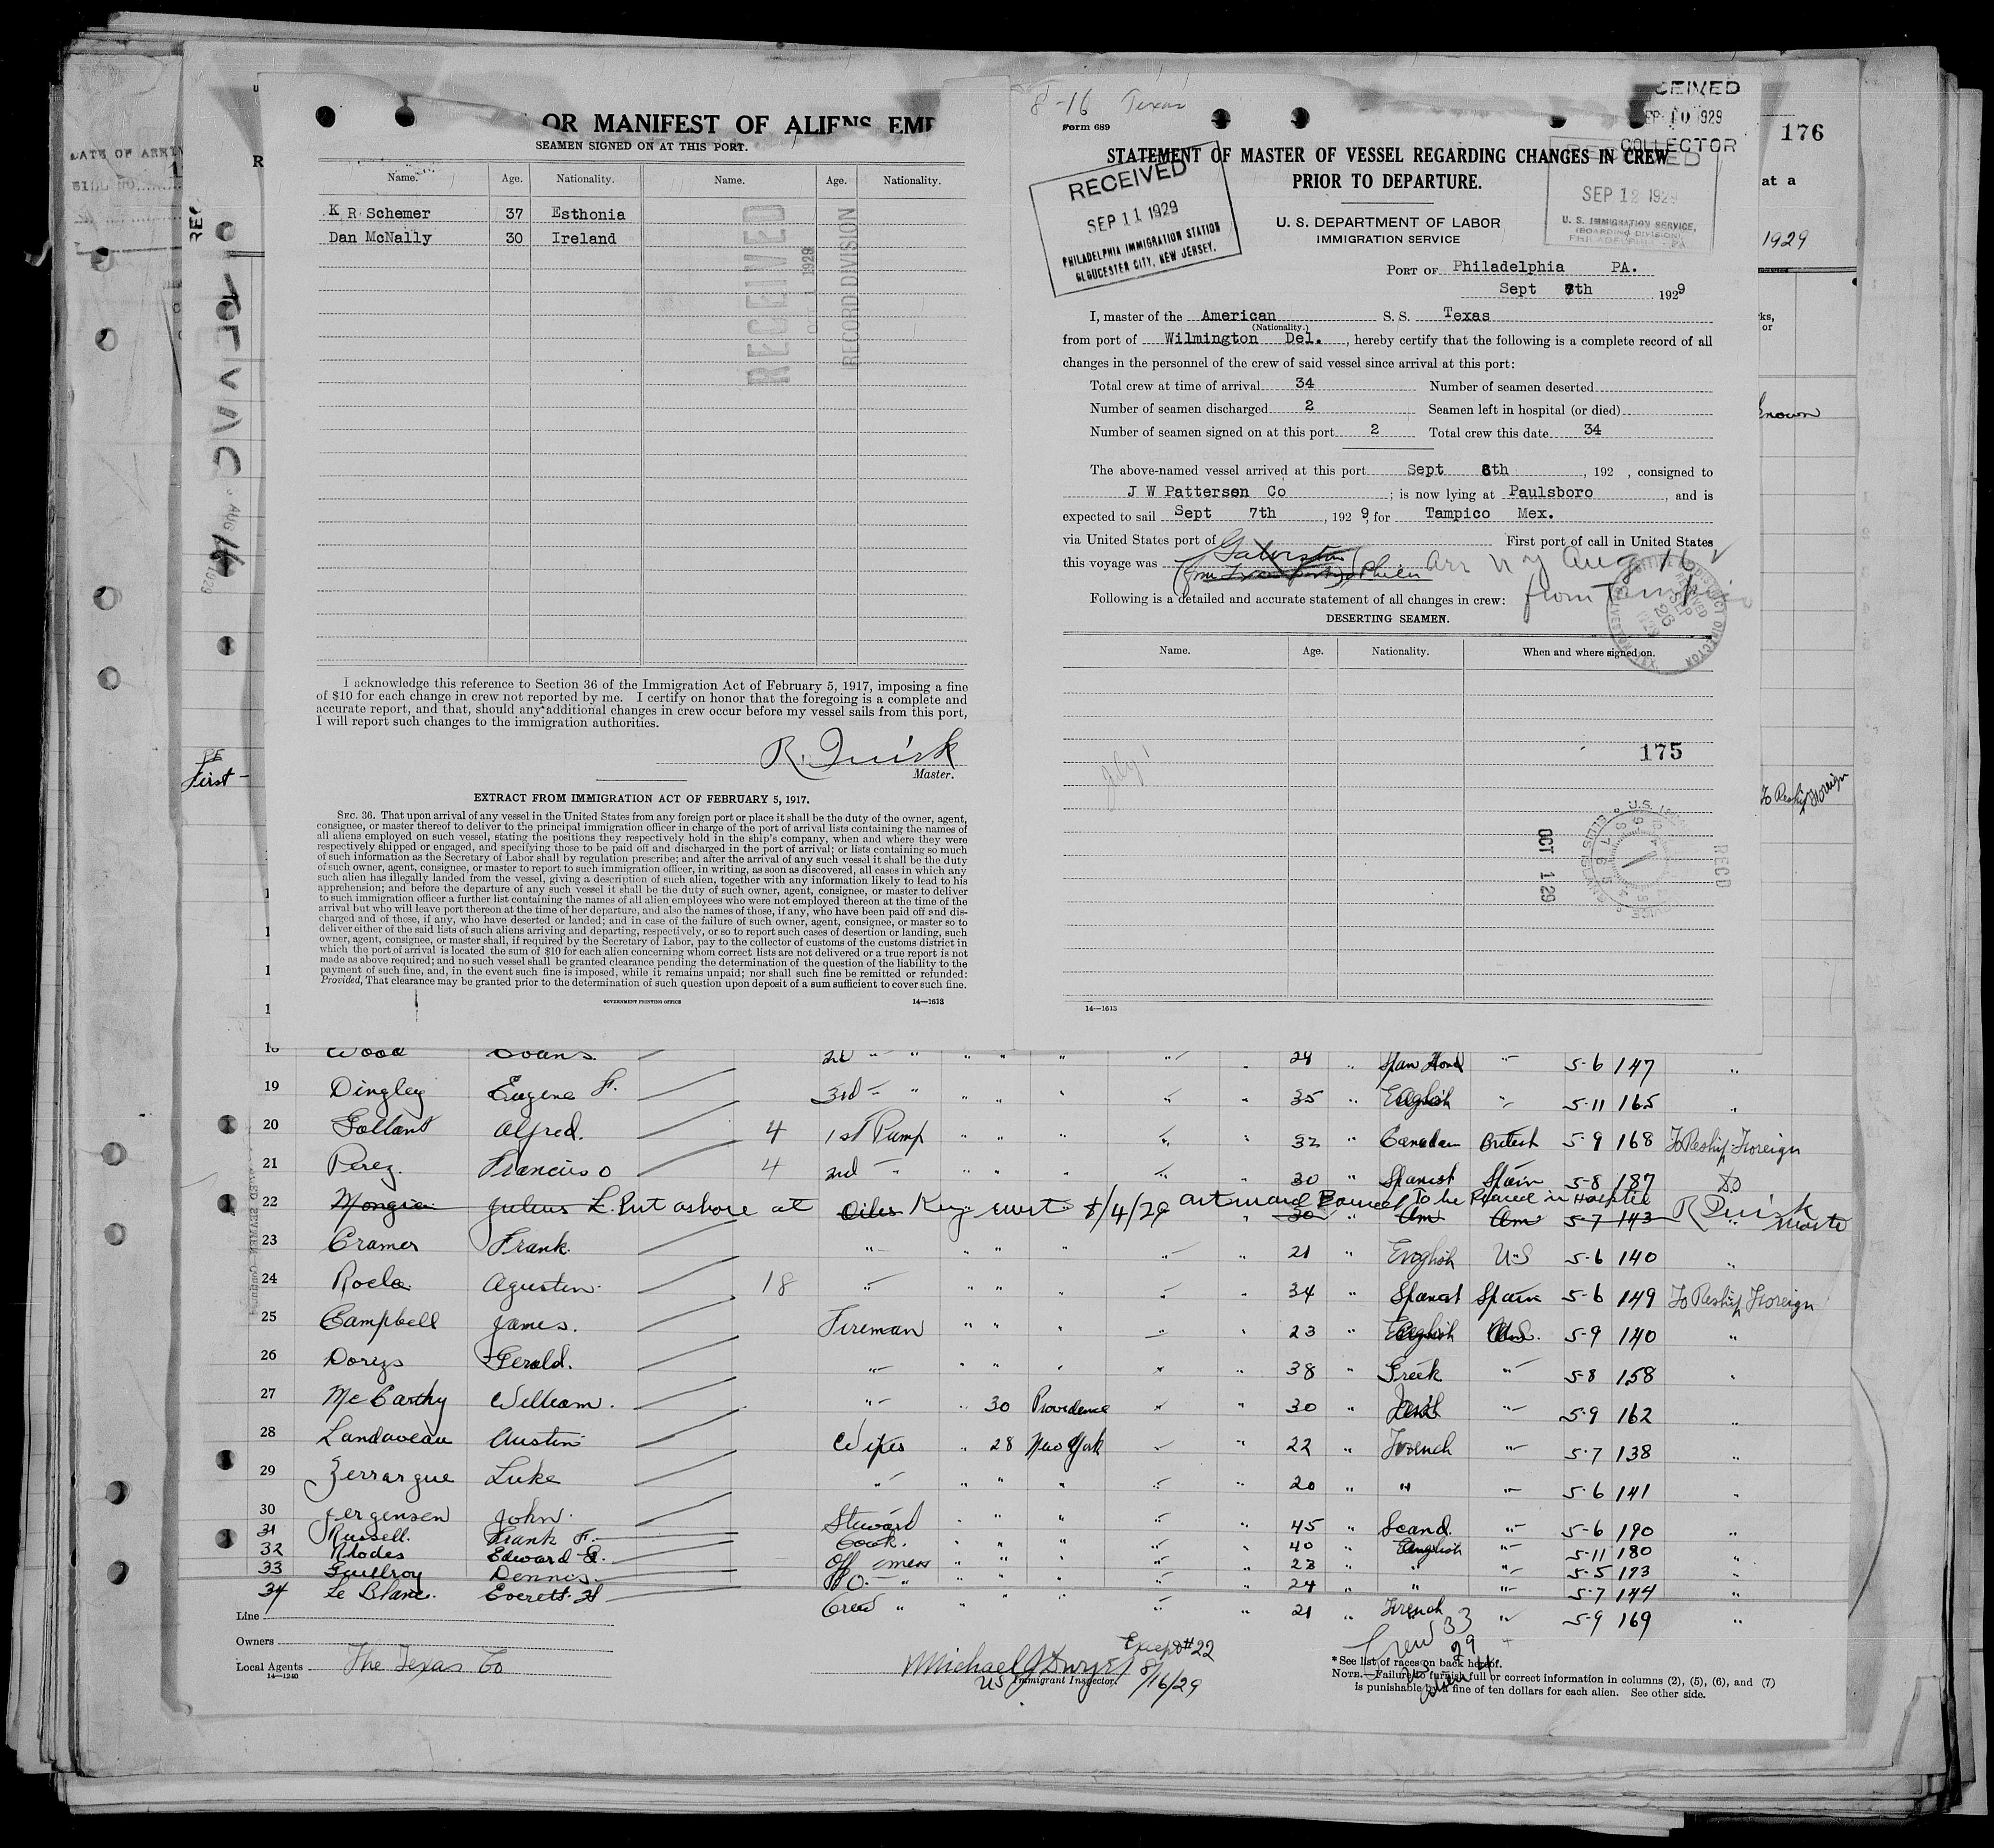 OR MANIFEST OF ALIENS
SEAMEN SIGNED ON AT THIS PORT.
Name. Age. Nationality. Name. Age. Nationality.
K R Schemer 37 Esthonia
Dan McNally 30 Ireland
RECEIVED
OCT 1 1929
RECORD DIVISION
I acknowledge this reference to Section 36 of the Immigration Act of February 5, 1917, imposing a fine
of $10 for each change in crew not reported by me. I certify on honor that the foregoing is a complete and
accurate report, and that, should any additional changes in crew occur before my vessel sails from this port,
I will report such changes to the immigration authorities.
R. Quirk
Master.
EXTRACT FROM IMMIGRATION ACT OF FEBRUARY 5, 1917.
SEC. 36. That upon arrival of any vessel in the United States from any foreign port or place it shall be the duty of the owner, agent,
consignee, or master thereof to deliver to the principal immigration officer in charge of the port of arrival lists containing the names of
all aliens employed on such vessel, stating the positions they respectively hold in the ship's company, when and where they were
respectively shipped or engaged, and specifying those to be paid off and discharged in the port of arrival; or lists containing so much
of such information as the Secretary of Labor shall by regulation prescribe; and after the arrival of any such vessel it shall be the duty
of such owner, agent, consignee, or master to report to such immigration officer, in writing, as soon as discovered, all cases in which any
such alien has illegally landed from the vessel, giving a description of such alien, together with any information likely to lead to his
apprehension; and before the departure of any such vessel it shall be the duty of such owner, agent, consignee, or master to deliver
to such immigration officer a further list containing the names of all alien employees who were not employed thereon at the time of the
arrival but who will leave port thereon at the time of her departure, and also the names of those, if any, who have been paid off and dis-
charged and of those, if any, who have deserted or landed; and in case of the failure of such owner, agent, consignee, or master so to
deliver either of the said lists of such aliens arriving and departing, respectively, or so to report such cases of desertion or landing, such
owner, agent, consignee, or master shall, if required by the Secretary of Labor, pay to the collector of customs of the customs district in
which the port of arrival is located the sum of $10 for each alien concerning whom correct lists are not delivered or a true report is not
made as above required; and no such vessel shall be granted clearance pending the determination of the question of the liability to the
payment of such fine, and, in the event such fine is imposed, while it remains unpaid; nor shall such fine be remitted or refunded:
Provided, That clearance may be granted prior to the determination of such question upon deposit of a sum sufficient to cover such fine.
GOVERNMENT PRINTING OFFICE 14—1613
8-16 Texas
Form 689
SEP 10 1929
COLLECTOR
STATEMENT OF MASTER OF VESSEL REGARDING CHANGES IN CREW
PRIOR TO DEPARTURE.
RECEIVED
SEP 11 1929
PHILADELPHIA IMMIGRATION STATION
GLOUCESTER CITY, NEW JERSEY.
RECEIVED
SEP 12 1929
U. S. IMMIGRATION SERVICE,
(BOARDING DIVISION)
PHILADELPHIA, PA.
U. S. DEPARTMENT OF LABOR
IMMIGRATION SERVICE
PORT OF Philadelphia PA.
Sept 7th 1929
I, master of the American S. S. Texas
(Nationality.)
from port of Wilmington Del. , hereby certify that the following is a complete record of all
changes in the personnel of the crew of said vessel since arrival at this port:
Total crew at time of arrival 34 Number of seamen deserted
Number of seamen discharged 2 Seamen left in hospital (or died)
Number of seamen signed on at this port 2 Total crew this date 34
The above-named vessel arrived at this port Sept 6th , 192 , consigned to
J W Patterson Co ; is now lying at Paulsboro , and is
expected to sail Sept 7th , 192 9, for Tampico Mex.
via United States port of Galveston First port of call in United States
this voyage was arr NY Aug 16
from Tampico
Following is a detailed and accurate statement of all changes in crew:
DESERTING SEAMEN.
Name. Age. Nationality. When and where signed on.
175
OCT 1 29
RECD
14—1613
176
at a
1929
known
To Reship Foreign
First
AUG 16 1929
18 Wood Evans. 2nd " " 28 " Span " 5-6 147 "
19 Dingley Eugene F. 3rd " " 35 " English " 5-11 165 "
20 Gallant Alfred. 4 1st Pump " " " " 32 " Canadian British 5-9 168 To Reship Foreign
21 Perez. Francisco 4 2nd " " " " 30 " Spanish Spain 5-8 187 Do
22 Julius L. Put ashore at Oiler Key west 8/4/29 To be Placed in Hospital 30 " Am Am 5-7 143 R Quirk Master
23 Cramer Frank. " " " " " 21 " English U.S 5-6 140 "
24 Agustin. 18 " " " " 34 " Spanish Spain 5-6 149 To Reship Foreign
25 Campbell James. Fireman " " " " 23 " English U.S. 5-9 140 "
26 Gerald. " " " " " 38 " Greek " 5-8 158 "
27 McCarthy William. " " 30 Providence " " 30 " Irish " 5-9 162 "
28 Landaveau Austin Wiper " 28 New York " " 22 " French " 5-7 138 "
29 Luke " " " " " " 20 " " " 5-6 141 "
30 Jergensen John. Steward " " " " " 45 " Scand. " 5-6 190 "
31 Russell. Frank F. Cook. " " " " " 40 " English " 5-11 180
32 Rhodes Edward " " " " " 23 " " " 5-5 173 "
33 Guillroy Dennis. " " " " " 24 " " " 5-7 144
34 Le Blanc. Everett. Crew " " " " 21 " French " 5-9 169 "
Line
Owners
Local Agents The Texas Co
14—1240
Except #22
Michael J Dwyer 8/16/29
US Immigrant Inspector.
Crew 33
29
* See list of races on back hereof.
NOTE.—Failure to furnish full or correct information in columns (2), (5), (6), and (7)
is punishable by a fine of ten dollars for each alien. See other side.